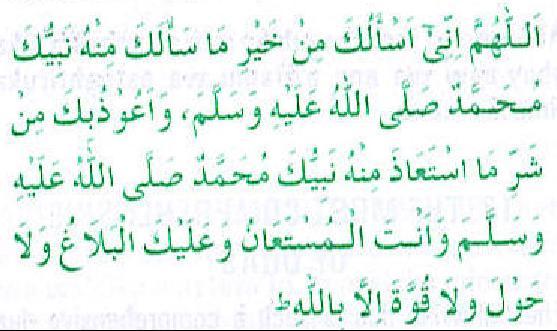 اَللّٰهُمَّ اِنِّىْ اَسْأَلُكَ مِنْ خَيْرِ مَا سَأَلَكَ مِنْهُ نَبِيُّكَ
مُحَمَّدٌ صَلَّى اللّٰهُ عَلَيْهِ وَسَلَّمَ، وَاَعُوْذُبِكَ مِنْ
شَرِّ مَا اسْتَعَاذَ مِنْهُ نَبِيُّكَ مُحَمَّدٌ صَلَّى اللّٰهُ عَلَيْهِ
وَسَلَّمَ وَاَنْتَ الْمُسْتَعَانُ وَعَلَيْكَ الْبَلَاغُ وَلَا
حَوْلَ وَلَا قُوَّةَ اِلَّا بِاللّٰهِ ط